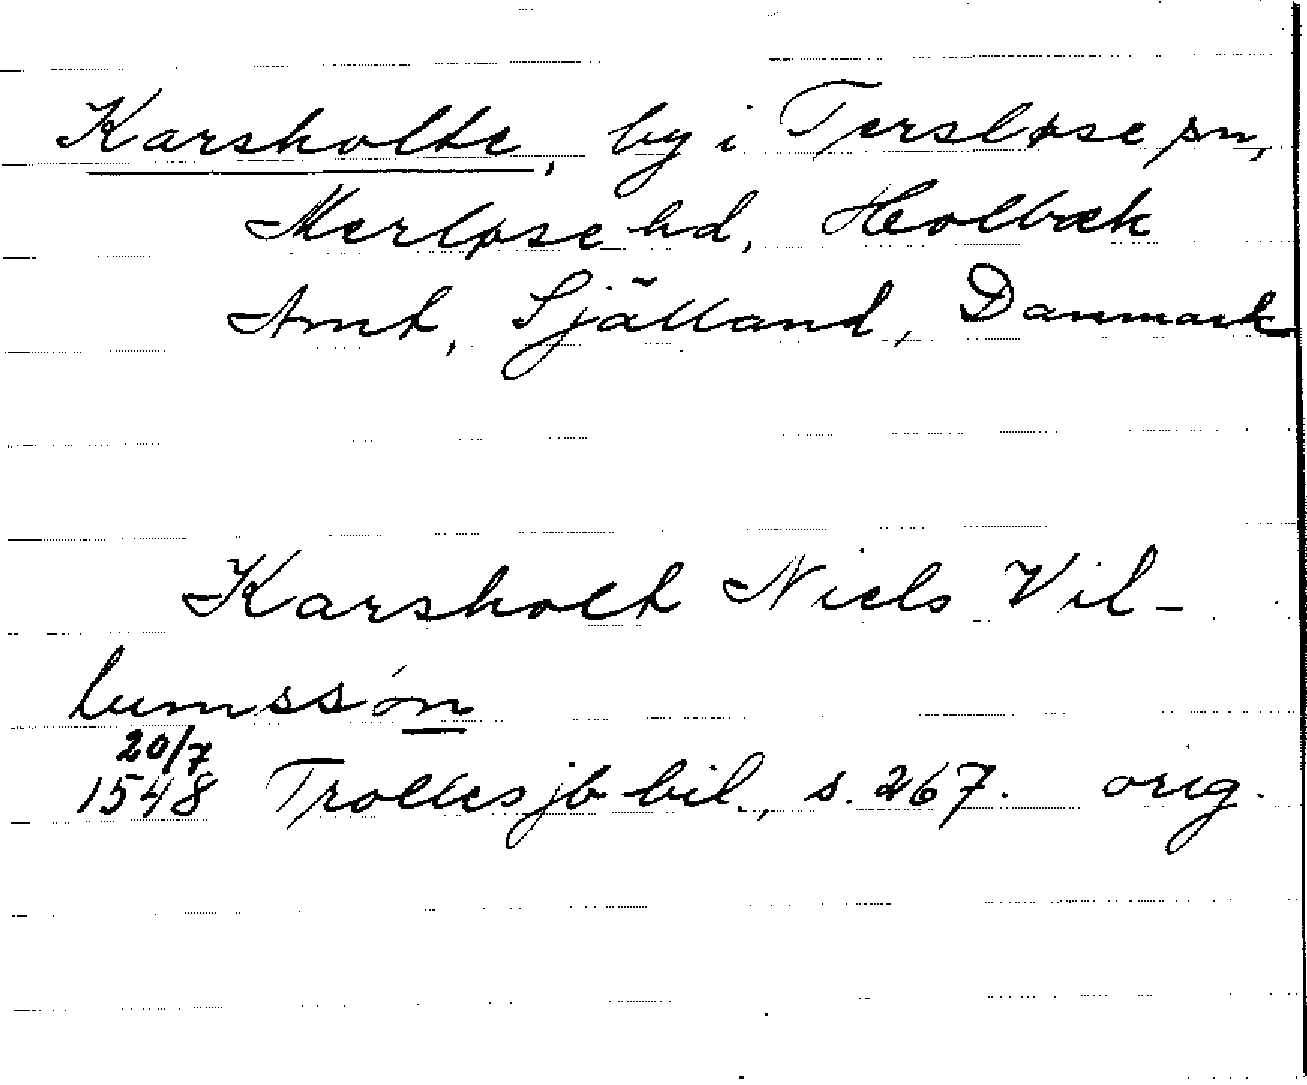 Karsholte, by i Tersløse sn,
Merløse hd, Holbæk
Amt, Själland, Danmark
Karsholt Niels Vil-
lumssøn
20/7
1548 Trollesjb bil., s. 267. orig.